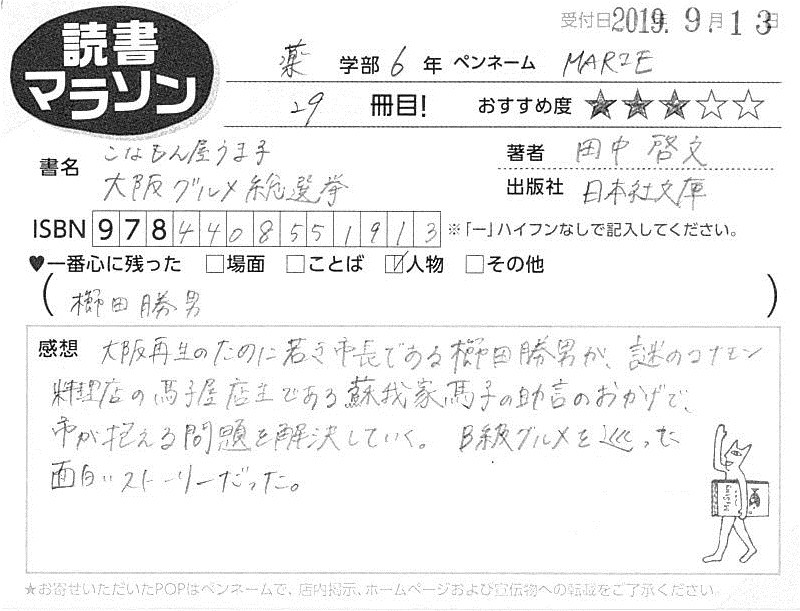 受付日 2019年 9月 13日
読書
マラソン
薬 学部 6 年 ペンネーム MARIE
29 冊目! おすすめ度 ★★★☆☆
書名 こなもん屋うま子
大阪グルメ総選挙
著者 田中啓文
出版社 日本社文庫
ISBN 9784408551913 ※「ー」ハイフンなしで記入してください。
♥一番心に残った □場面 □ことば ☑人物 □その他
(櫛田勝男)
感想 大阪再生のために若き市長である櫛田勝男が、謎のコナモン
料理店の馬子屋店主である蘇我家馬子の助言のおかげで、
市が抱える問題を解決していく。 B級グルメを巡った
面白いストーリーだった。
★お寄せいただいたPOPはペンネームで、店内掲示、ホームページおよび宣伝物への転載をご了承ください。